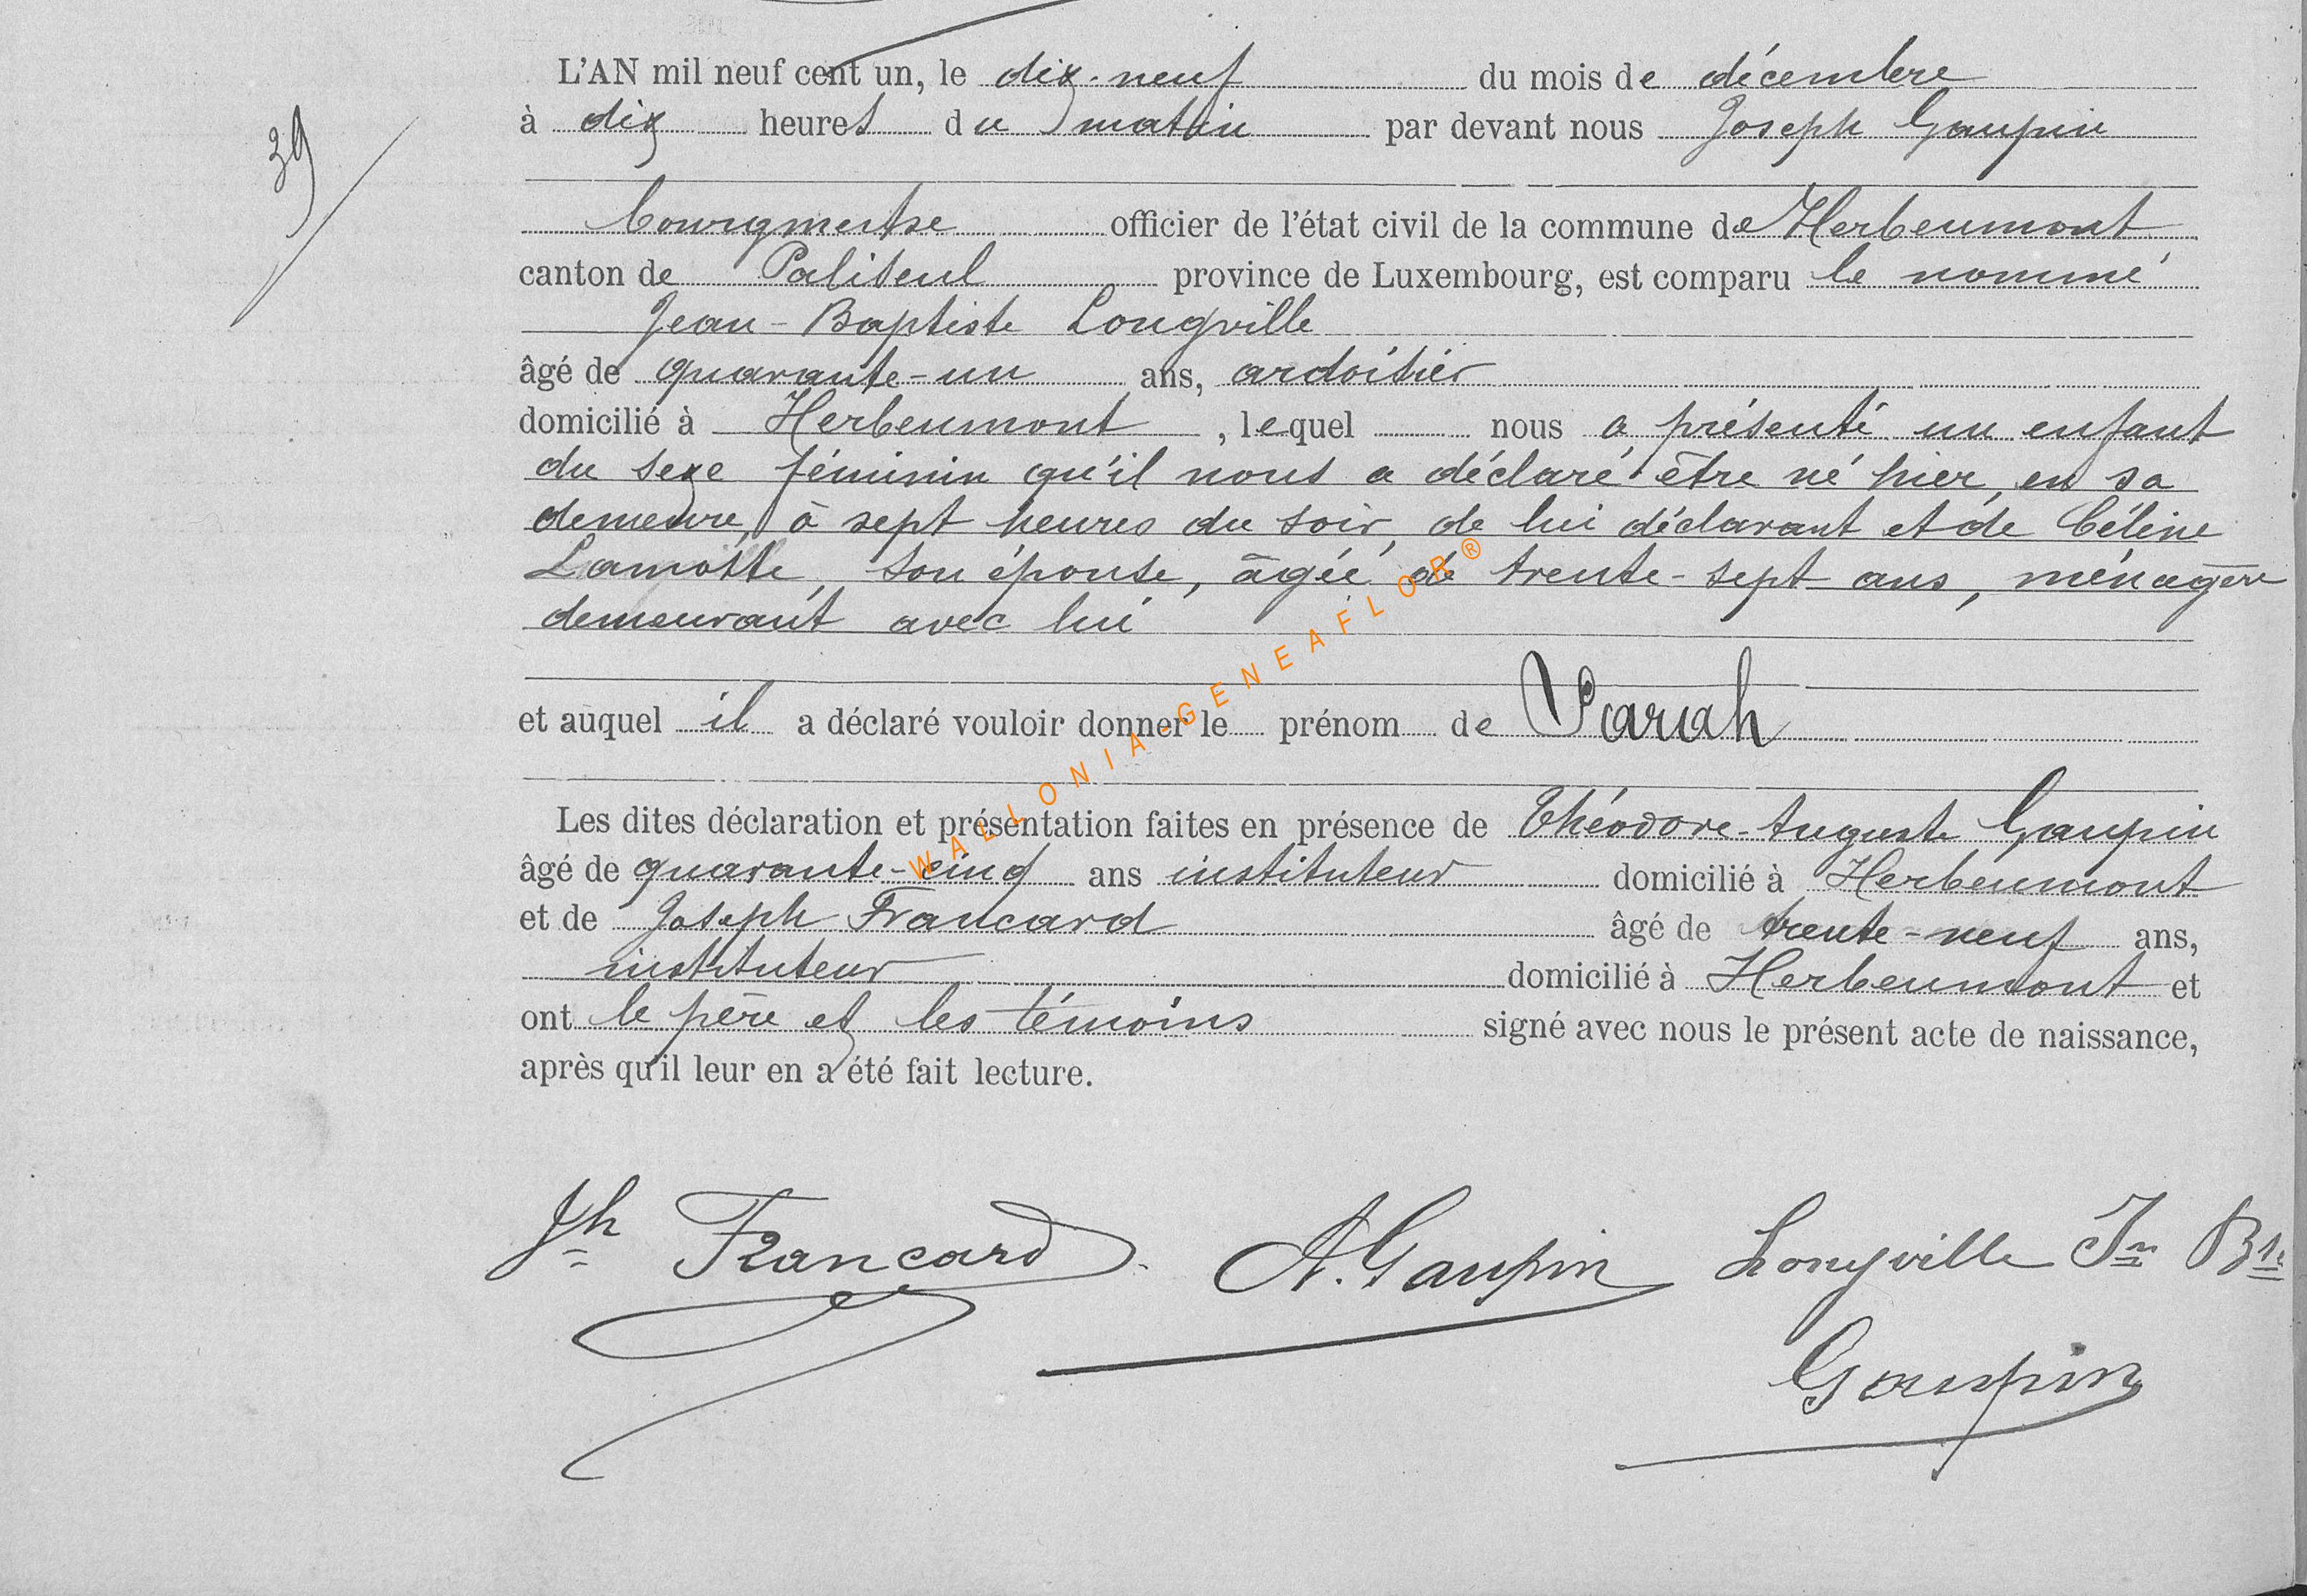 L'AN mil neuf cent un, le dix-neuf du mois de décembre
39
à dix heures du matin par devant nous Joseph Gaupin
bourgmestre officier de l'état civil de la commune de Herbeumont
canton de Paliseul province de Luxembourg, est comparu le nommé
Jean-Baptiste Longville
âgé de quarante-un ans, ardoisier
domicilié à Herbeumont, lequel nous a présenté un enfant
du sexe féminin qu'il nous a déclaré être né hier, en sa
demeure, à sept heures du soir, de lui déclarant et de Céline
Lamotte, son épouse, âgée de trente-sept ans, ménagère
demeurant avec lui
et auquel il a déclaré vouloir donner le prénom de Sarah
Les dites déclaration et présentation faites en présence de Théodore-Auguste Gaupin
âgé de quarante-cinq ans instituteur domicilié à Herbeumont
et de Joseph Francard âgé de trente-neuf ans,
instituteur domicilié à Herbeumont et
ont le père et les témoins signé avec nous le présent acte de naissance,
après qu'il leur en a été fait lecture.
Jh Francard. A. Gaupin Longville Jn Bte
Gaupin
WALLONIA-GENEAFLOR®